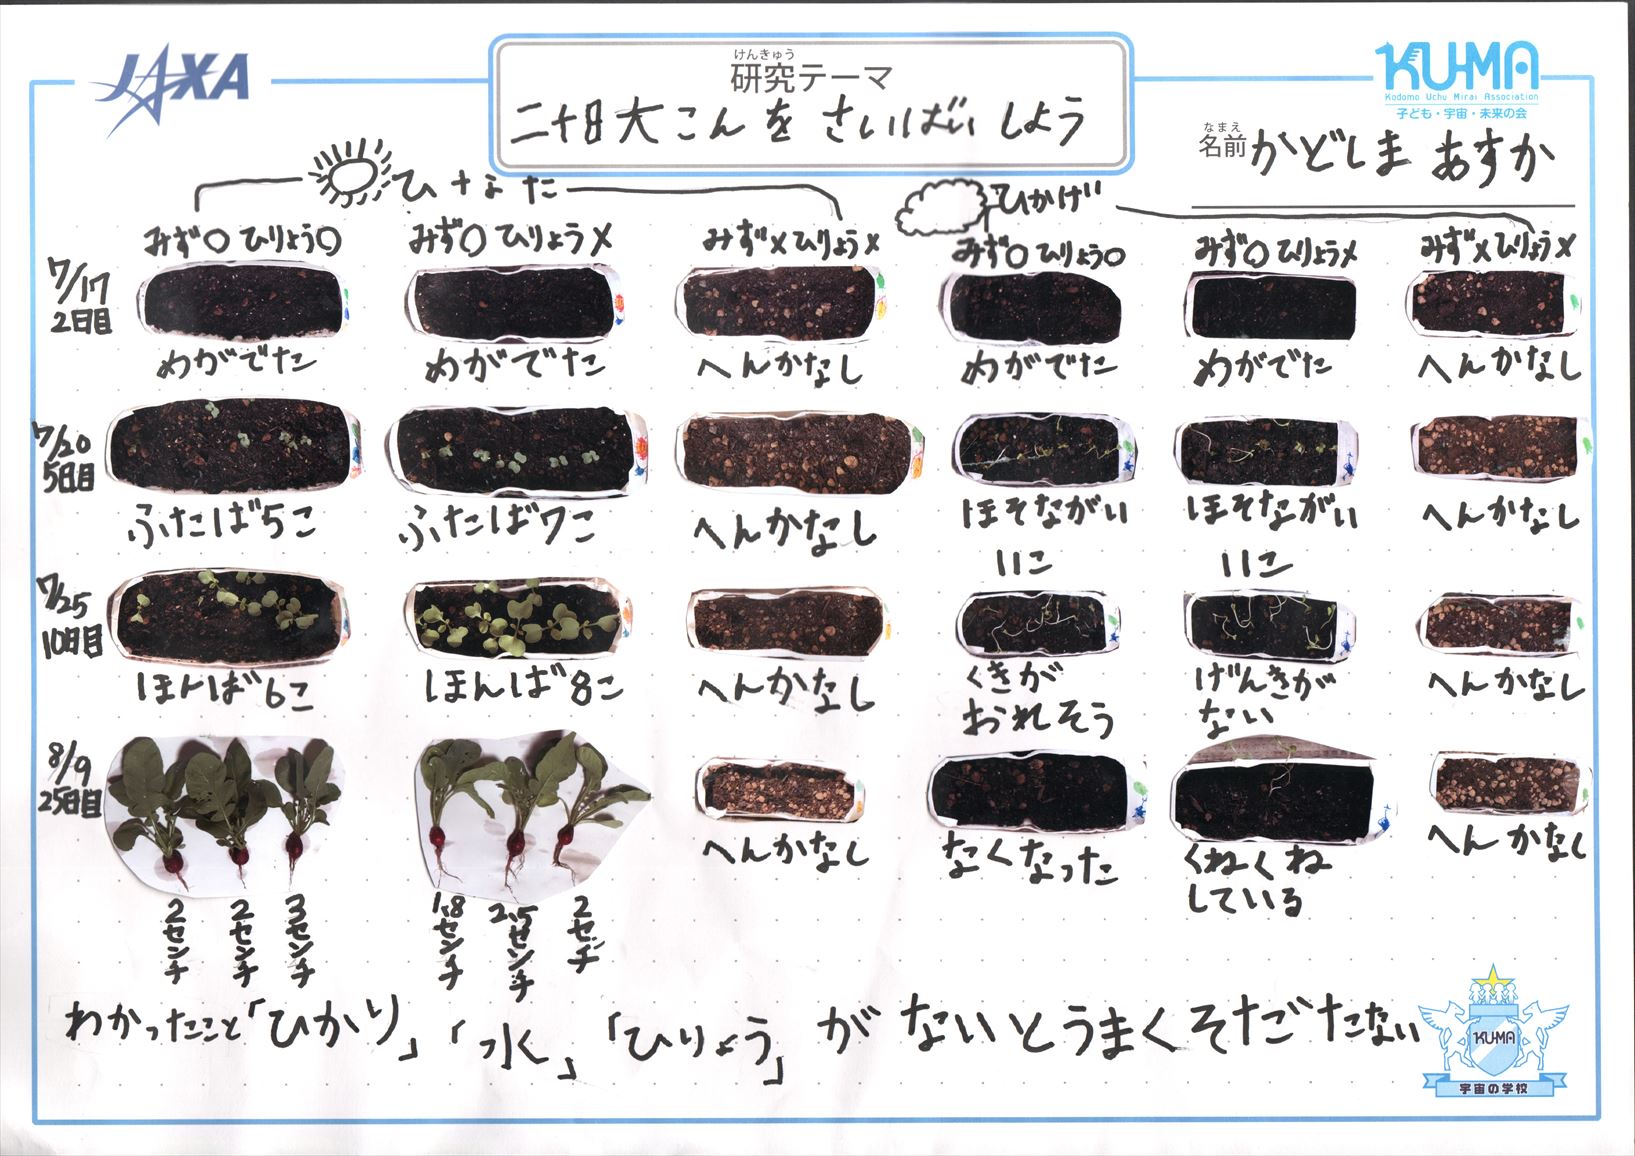 JAXA
けんきゅう
研究テーマ
二十日大こんを さいばいしよう
KU-MA
Kodomo Uchu Mirai Association
子ども・宇宙・未来の会
なまえ
名前 かどしま あすか
ひなた
ひかげ
みず○ひりょう○ みず○ひりょう× みず×ひりょう× みず○ひりょう○ みず○ひりょう× みず×ひりょう×
7/17
2日目
めがでた めがでた へんかなし めがでた めがでた へんかなし
7/20
5日目
ふたば5こ ふたば7こ へんかなし ほそながい ほそながい へんかなし
11こ 11こ
7/25
10日目
ほんば6こ ほんば8こ へんかなし くきが げんきが へんかなし
おれそう ない
8/9
25日目
へんかなし なくなった くねくね へんかなし
している
2センチ 2センチ 3センチ 1.8センチ 2.5センチ 2センチ
わかったこと「ひかり」「水」「ひりょう」がないとうまくそだたない
KU-MA
宇宙の学校